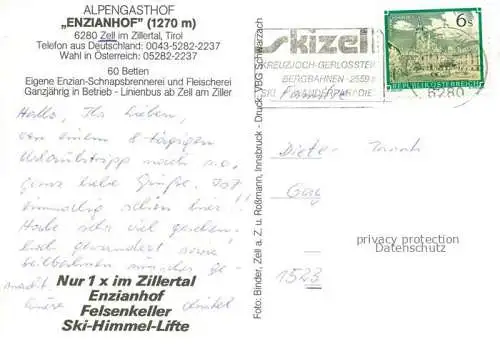 ALPENGASTHOF
„ENZIANHOF" (1270 m)
6280 Zell im Zillertal, Tirol
Telefon aus Deutschland: 0043-5282-2237
Wahl in Österreich: 05282-2237
60 Betten
Eigene Enzian-Schnapsbrennerei und Fleischerei
Ganzjährig in Betrieb - Linienbus ab Zell am Ziller
Hallo, Ihr Lieben,
von einem 8-tägigen
Urlaubstripp noch
ganz liebe Grüße. Ist
einmalig schön hier!!
Habe sehr viel gesehen,
hoch gewandert sowie
gemacht.
Nur 1 x im Zillertal
Enzianhof
Felsenkeller
Ski-Himmel-Lifte
Foto: Binder, Zell a. Z. u. Roßmann, Innsbruck - Druck: VBG Schwarzach
skizell
KREUZJOCH-GERLOSSTEIN
BERGBAHNEN - 2559
SKI
WANDERPARADIE
6 S
REPUBLIK ÖSTERREICH
6280
Familie
Dieter
privacy protection
Datenschutz
1523